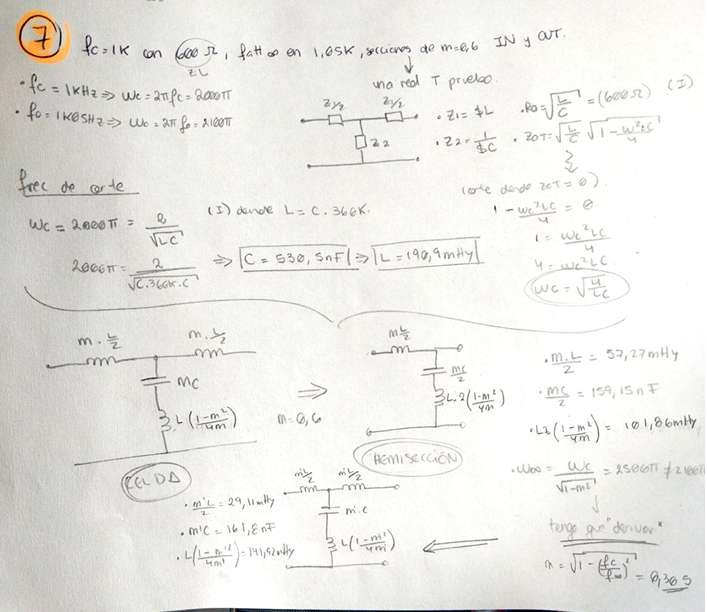 7 fc=1K con 600 Ω, f att ∞ en 1,05K, secciones de m=0,6 IN y OUT.
ZL
una real T prueba.
• fc = 1KHz ⇒ Wc = 2πfc = 2000π
• f∞ = 1K05Hz ⇒ W∞ = 2π f∞ = 2100π
Z1/2 Z1/2
Z2
• Z1 = $L
• Z2 = 1/$C
• Ro = √(L/C) = (600Ω) (I)
• ZOT = √(L/C) √(1 - W²LC/4)
frec de corte
(corte donde ZOT = 0)
1 - Wc²LC/4 = 0
1 = Wc²LC/4
4 = Wc²LC
Wc = √(4/LC)
Wc = 2000π = 2/√LC
(I) donde L = C. 360K.
2000π = 2/√(C.360K.C) ⇒ C = 530,5nF ⇒ L = 190,9mHy
m. L/2 m. L/2
mC
L(1-m²/4m)
CELDA
⇒
m=0,6
m L/2
mC/2
L.2(1-m²/4m)
HEMISECCIÓN
• m.L/2 = 57,27mHy
• mC/2 = 159,15nF
• L2(1-m²/4m) = 101,86mHy
• W∞ = Wc/√(1-m²) = 2500π ≠ 2100π
tengo que "derivar"
m = √(1 - (fc/f∞)²) = 0,305
m'L/2 m'L/2
m'.C
L(1-m'/4m')
• m'L/2 = 29,11mHy
• m'C = 161,8nF
• L(1-m'²/4m') = 141,92mHy